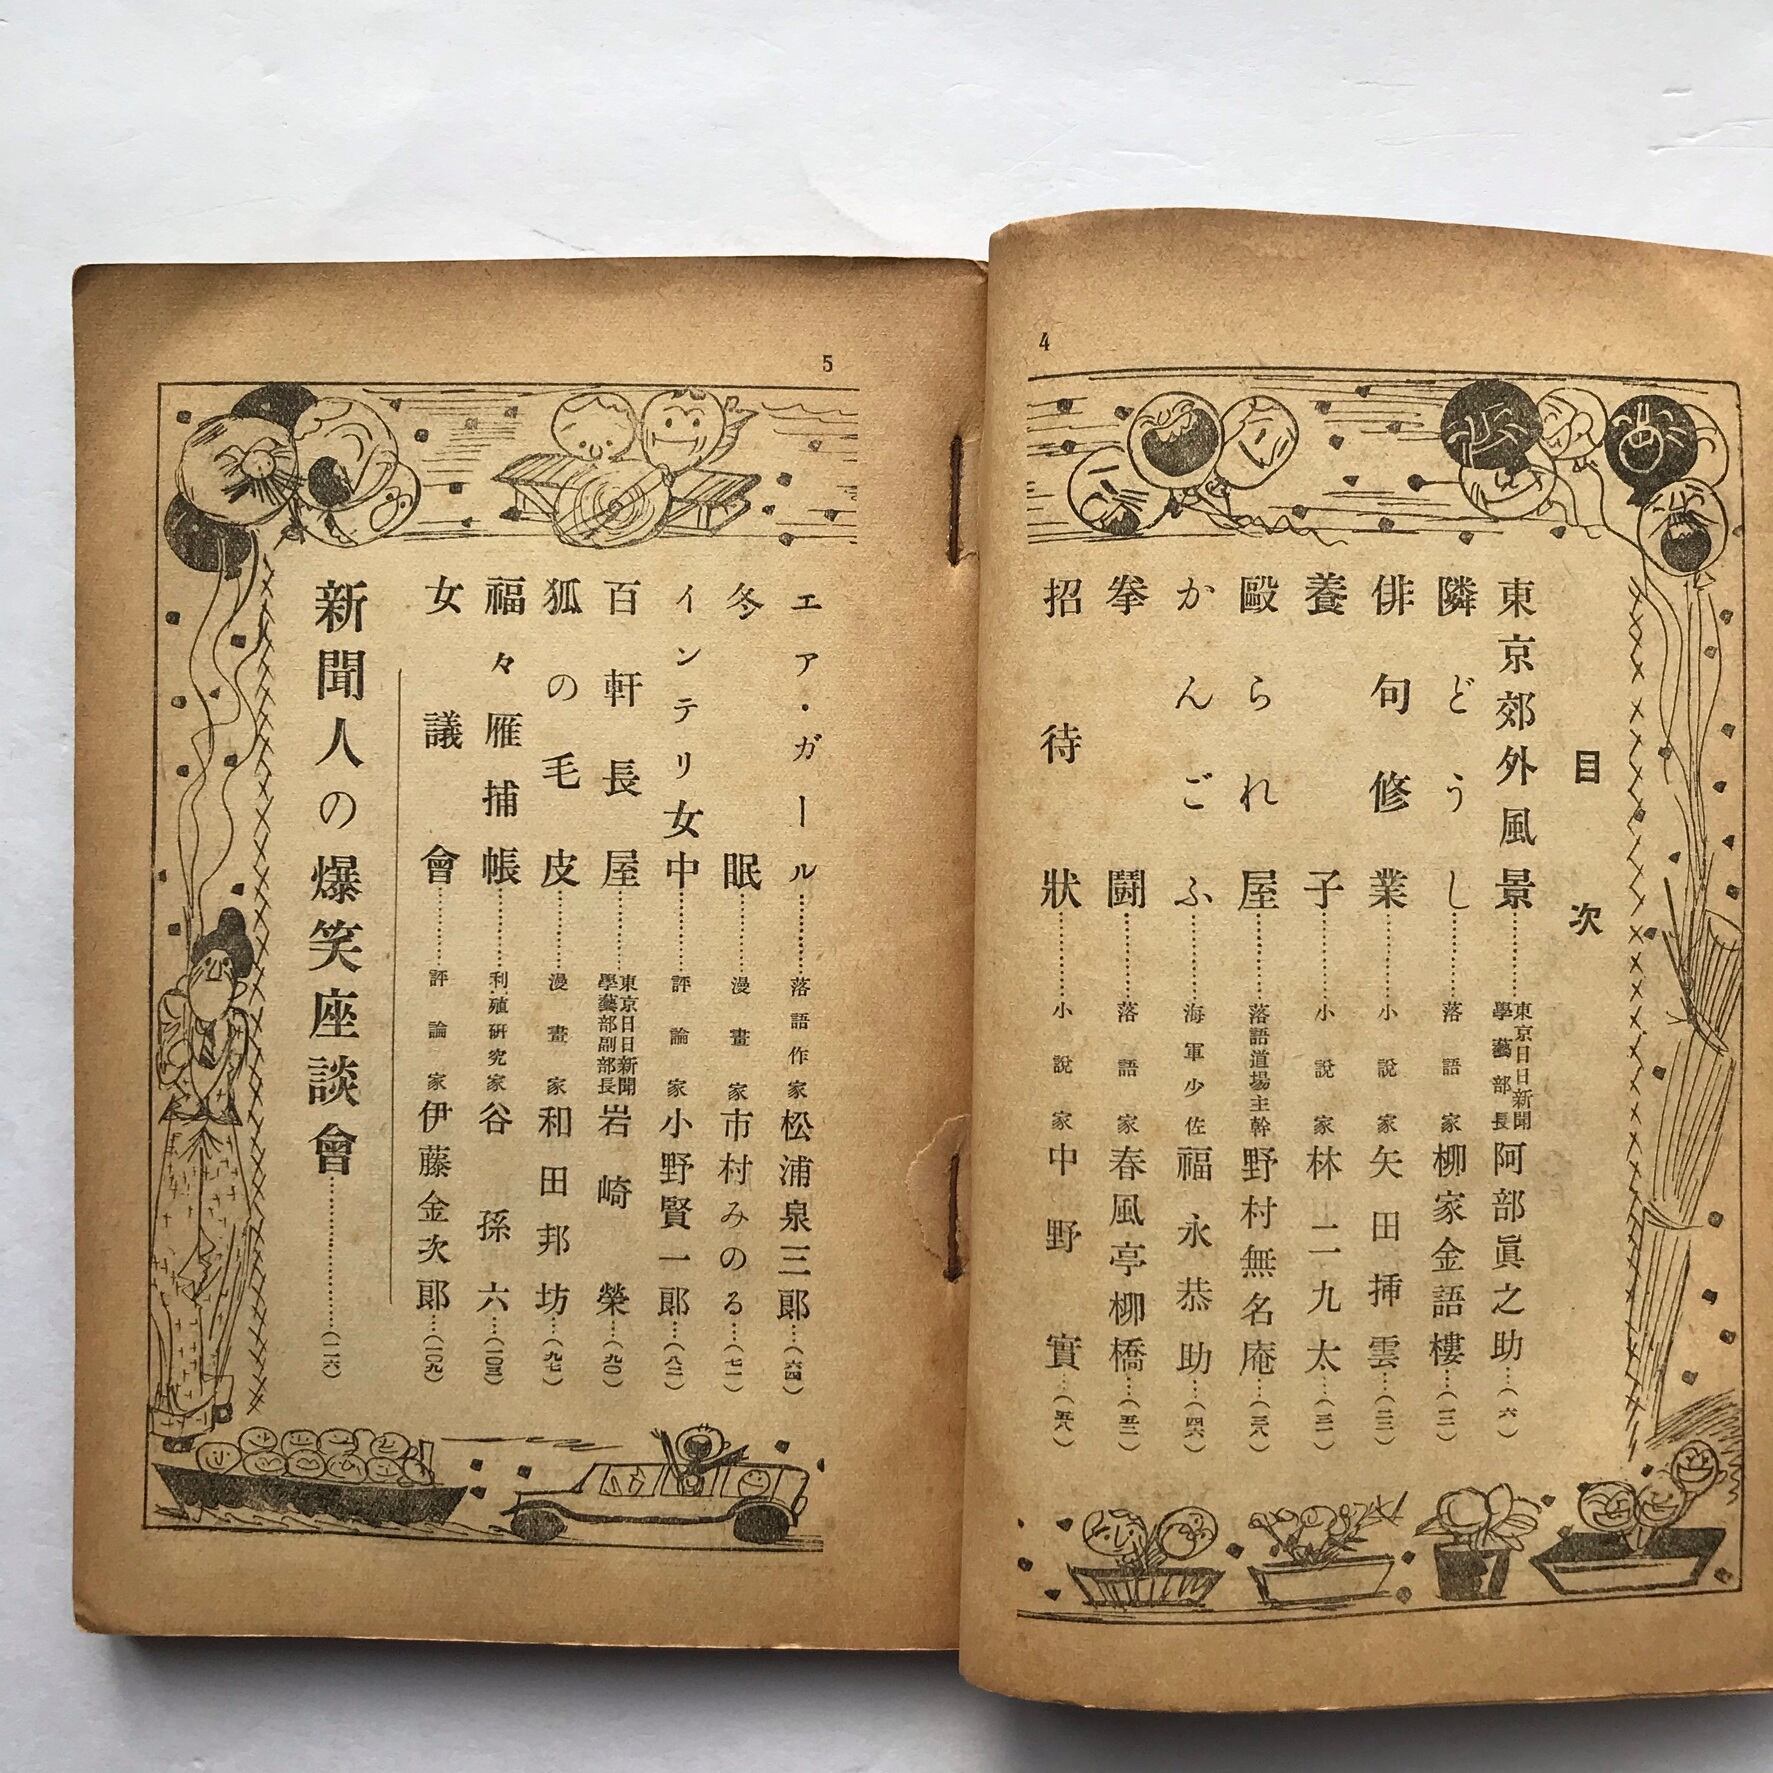 4
目次
東京郊外風景…………東京日日新聞學藝部長阿部眞之助…(六)
隣どうし…………落語家柳家金語樓…(一二)
俳句修業…………小說家矢田挿雲…(二二)
養子…………小說家林二九太…(三一)
毆られ屋…………落語道場主幹野村無名庵…(三八)
かんごふ…………海軍少佐福永恭助…(四六)
拳鬪…………落語家春風亭柳橋…(五二)
招待狀…………小說家中野實…(五八)
5
エア・ガール…………落語作家松浦泉三郞…(六四)
冬眠…………漫畫家市村みのる…(七一)
インテリ女中…………評論家小野賢一郞…(八二)
百軒長屋…………東京日日新聞學藝部副部長岩崎榮…(九〇)
狐の毛皮…………漫畫家和田邦坊…(九七)
福々雁捕帳…………利殖硏究家谷孫六…(一〇三)
女議會…………評論家伊藤金次郞…(一〇九)
新聞人の爆笑座談會…………(一一六)